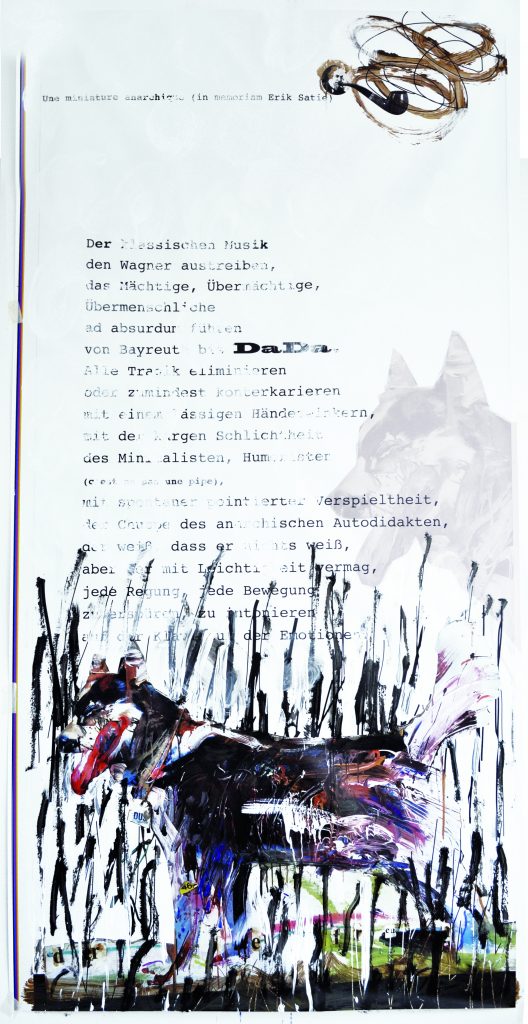 Une miniature anarchique (in memoriam Erik Satie)
Der klassischen Musik
den Wagner austreiben,
das Mächtige, Übermächtige,
Übermenschliche
ad absurdum führen
von Bayreuth bis DaDa.
Alle Tragik eliminieren
oder zumindest konterkarieren
mit einem lässigen Händewinkern,
mit der kargen Schlichtheit
des Minimalisten, Humoristen
(c'est ne pas une pipe),
mit spontaner pointierter Verspieltheit,
der Coupe des anarchischen Autodidakten,
der weiß, dass er nichts weiß,
aber der mit Leichtigkeit vermag,
jede Regung, jede Bewegung
zu erspüren, zu intonieren
auf der Klaviatur der Emotionen
DU